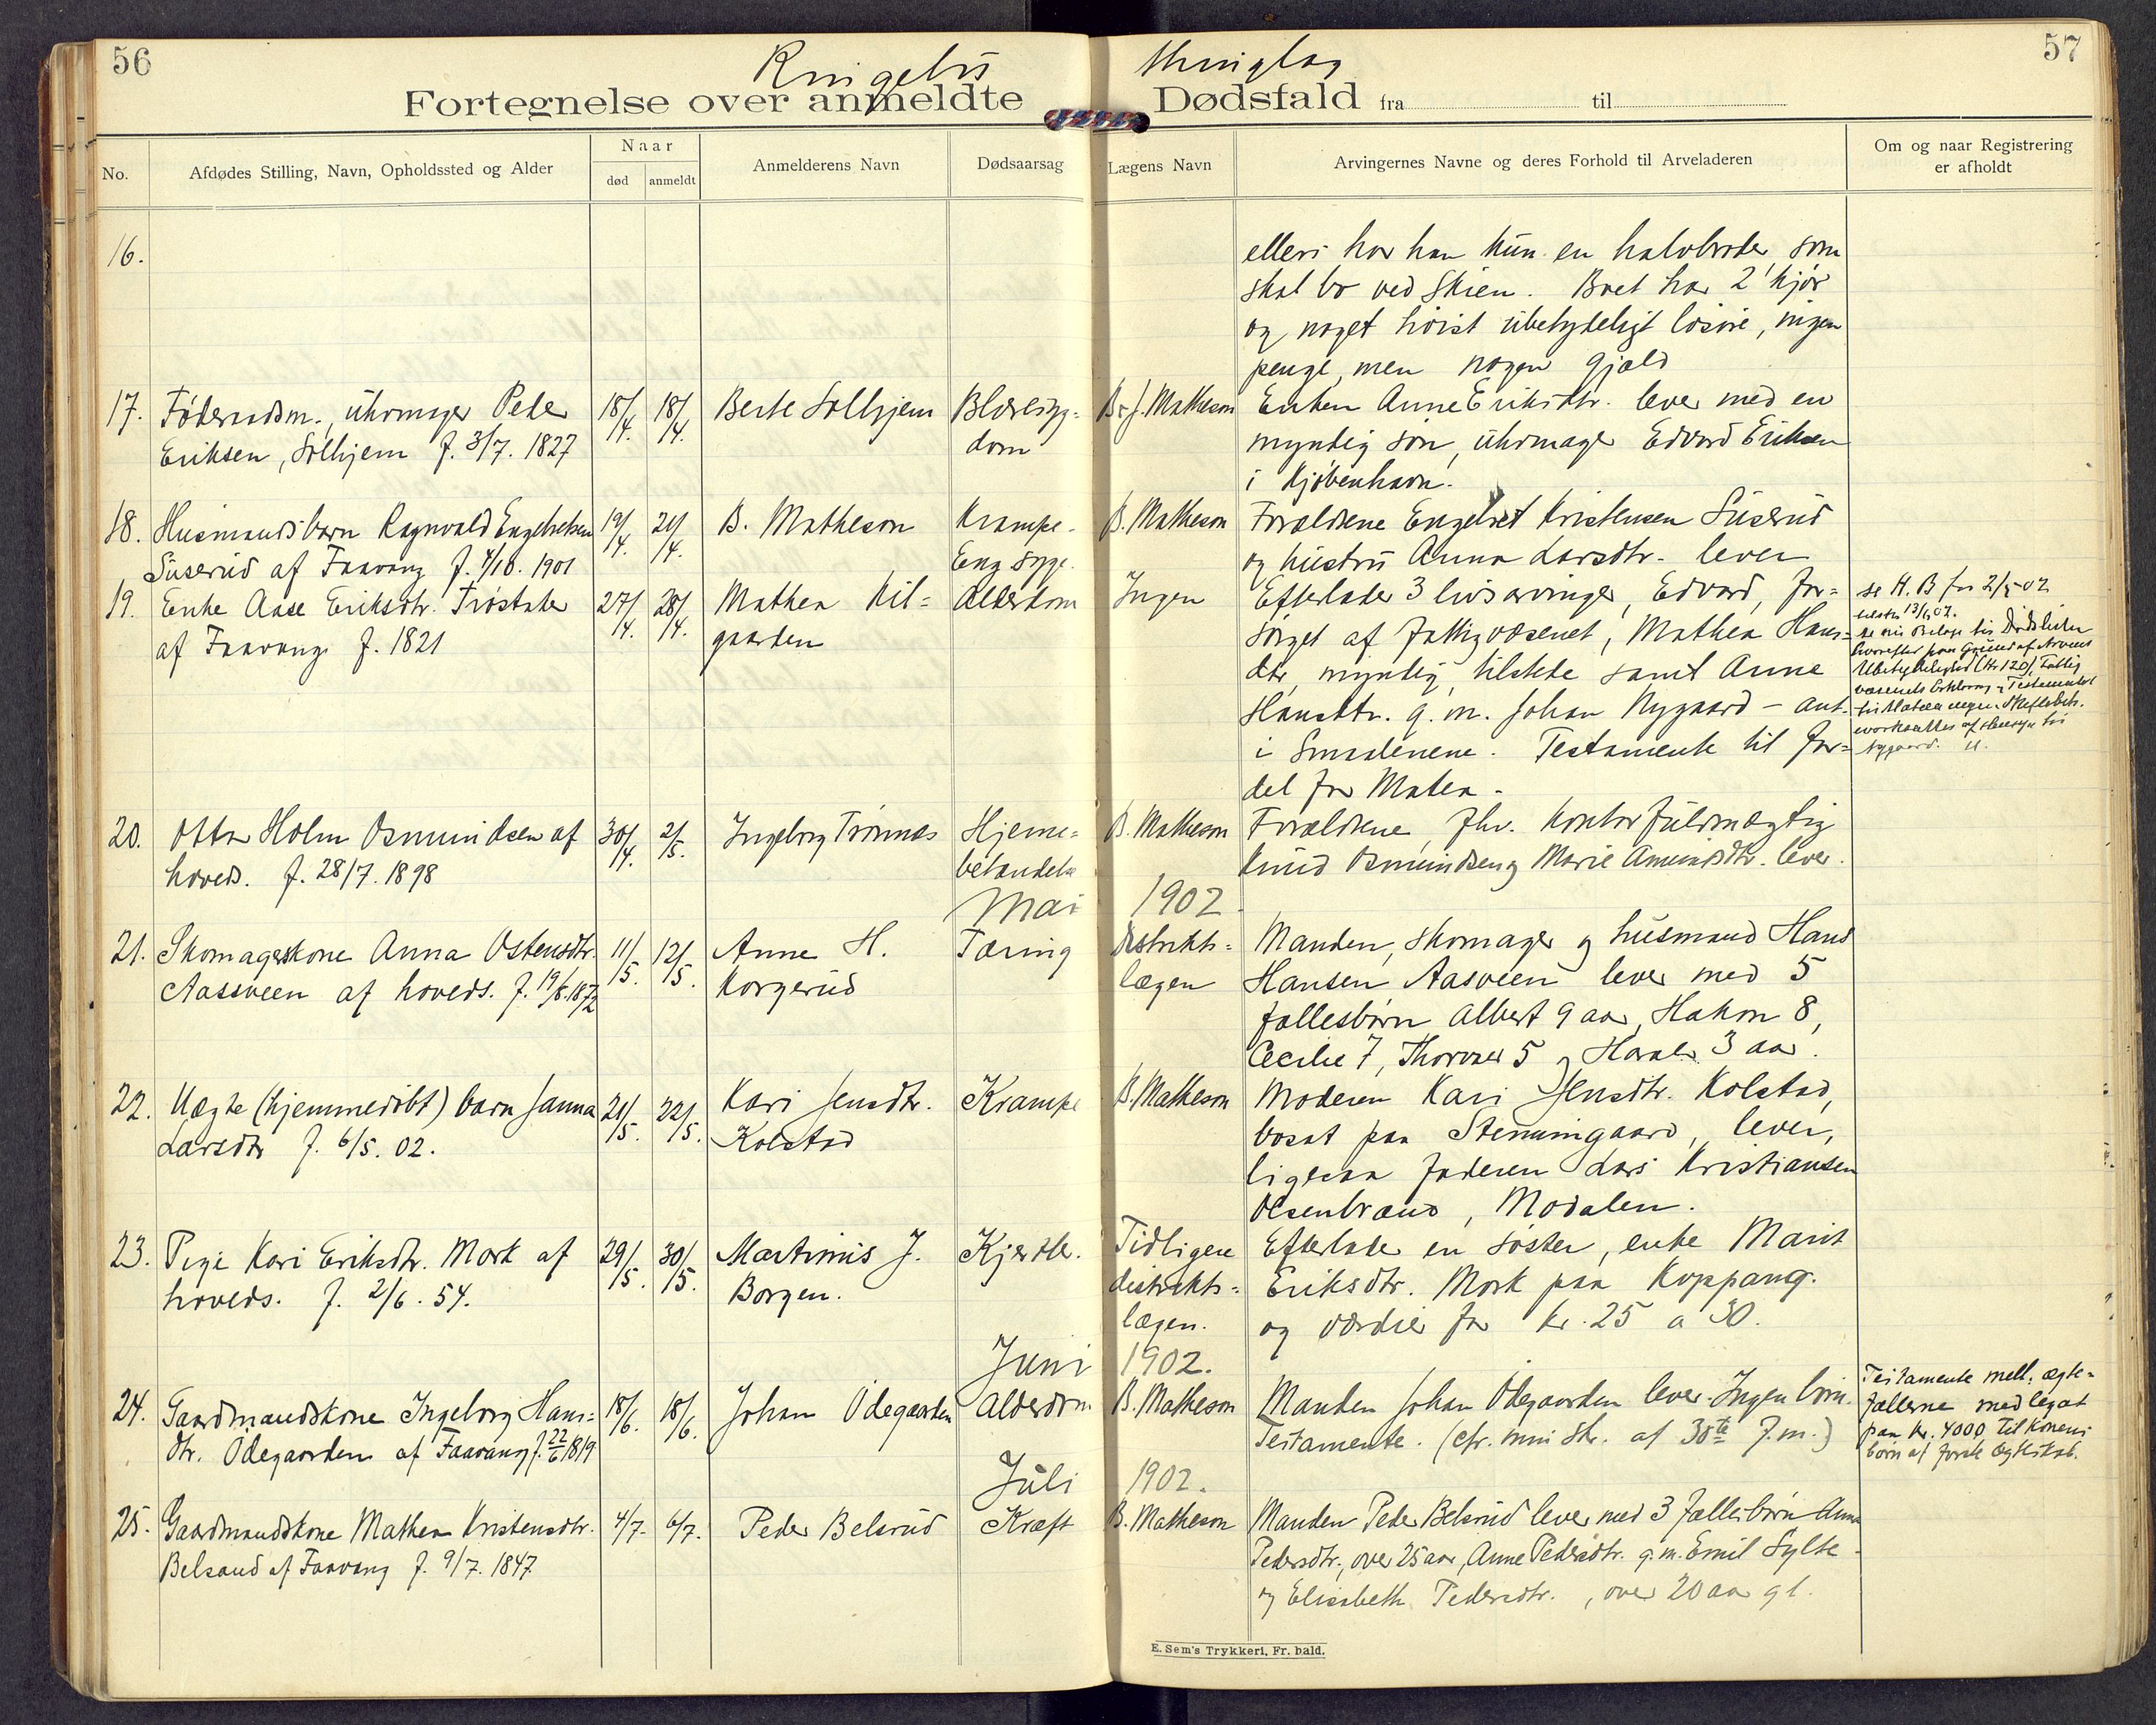 56
Ringebu
Thinglag
57
Fortegnelse over anmeldte Dødsfald fra til
No.
Afdødes Stilling, Navn, Opholdssted og Alder
Naar
død
anmeldt
Anmelderens Navn
Dødsaarsag
Lægens Navn
Arvingernes Navne og deres Forhold til Arveladeren
Om og naar Registrering
er afholdt
16.
ellers har han kun en halvbroder, som
skal bo ved Skien. Boet har 2 kjør
og noget høist ubetydeligt løsøre, ingen
penge, men nogen gjæld
17.
Føderaadsm., uhrmager Peder
Eriksen, Solhjem f. 3/7. 1827
18/4.
18/4.
Berte Solhjem
Blæresyg-
dom
B. J. Matheson
Enken Anne Eriksdtr. lever med en
myndig søn, uhrmager Edvard Eriksen
i Kjøbenhavn.
18.
Husmandsbarn Ragnvald Engebretsen
Suserud af Faavang f. 4/10. 1901
19/4.
21/4.
B. Matheson
Krampe.
Eng. syge.
B. Matheson
Forældrene Engebret Kristensen Suserud
og hustru Anna Larsdtr. lever
19.
Enke Aase Eriksdtr. Frøstaker
af Faavang f. 1821
27/4.
28/4.
Mathea Kil-
gaarden
Alderdom
Ingen
Efterlader 3 livsarvinger, Edvard, for-
sørget af fattigvæsenet, Mathea Hans-
dtr, myndig, tilstede samt Anne
Hansdtr. g. m. Johan Nygaard – ant.
i Smaalenene. Testamente til for-
del for Matea.
se H. B for 2/5 02
13/6 02.
20.
Otto Holm Osmundsen af
hoveds. f. 28/7. 1898
30/4.
2/5.
Ingeborg Trønnæs
Hjerne-
betændelse
B. Matheson
Forældrene, fhv. kontorfuldmægtig
Knud Osmundsen og Marie Amundsdtr. lever.
Mai 1902.
21.
Skomagerkone Anna Ostensdtr.
Aasveen af hoveds. f. 19/8. 1872
11/5.
12/5.
Anne H.
Korgerud
Tæring
Distrikts-
lægen
Manden, skomager og husmand Hans
Hansen Aasveen lever med 5
fællesbørn Albert 9 aar, Hakon 8,
Cecilie 7, Thorvær 5 og Harald 3 aar.
22.
Uægte (hjemmedøbt) barn Janna
Larsdtr f. 6/5. 02.
21/5.
22/5.
Kari Jensdtr.
Kolstad
Krampe
B. Matheson
Moderen Kari Jensdtr. Kolstad,
bosat paa Stemmingaard, lever,
ligesaa faderen Lars Kristiansen
Osenbrænd, Modalen.
23.
Pige Kari Eriksdtr. Mork af
hoveds. f. 2/6. 54.
29/5.
30/5.
Martinus J.
Borgen.
Kjertler.
Tidligere
distrikts-
lægen.
Efterlader en søster, enke Marit
Eriksdtr. Mork paa Koppang.
og værdier for kr. 25 a 30.
Juni 1902.
24.
Gaardmandskone Ingeborg Hans-
dtr. Ødegaarden af Faavang f. 22/6 1819
18/6.
18/6.
Johan Ødegaarden
Alderdom
B. Matheson
Manden Johan Ødegaarden lever. Ingen børn.
Testamente. (cfr. min skr. af 30te f. m.)
Testamente mell. ægte-
fællerne med legat
paa kr. 4000 til konens
børn af første ægteskab.
Juli 1902.
25.
Gaardmandskone Mathea Kristensdtr.
Belsrud af Faavang f. 9/7. 1847
4/7.
6/7.
Peder Belsrud
Kræft
B. Matheson
Manden Peder Belsrud lever med 3 fællesbørn Anna
Pedersdtr., over 25 aar, Anne Pedersdtr. g. m. Emil Sylte
og Elisabeth Pedersdtr., over 20 aar gl.
E. Sem's Trykkeri, Fr. hald.